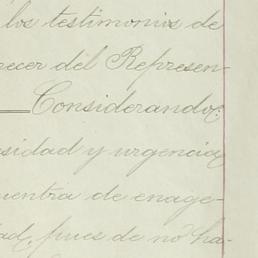 los testimonios de
recer del Represen-
Considerando:
sidad y urgencia
uentra de enage-
dad, pues de no ha-